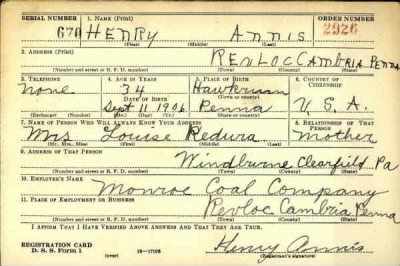 SERIAL NUMBER 1. NAME (Print) ORDER NUMBER
670 HENRY ANNIS 2926
(First) (Middle) (Last)
2. ADDRESS (Print)
REVLOC CAMBRIA PENNA
(Number and street or R. F. D. number) (Town) (County) (State)
3. TELEPHONE 4. AGE IN YEARS 5. PLACE OF BIRTH 6. COUNTRY OF CITIZENSHIP
None 34 Penna U. S. A.
DATE OF BIRTH (Town or county)
Sept 11 1906
(Exchange) (Number) (Mo.) (Day) (Yr.) (State or country)
7. NAME OF PERSON WHO WILL ALWAYS KNOW YOUR ADDRESS 8. RELATIONSHIP OF THAT PERSON
Mrs Louise Redura Mother
(Mr., Mrs., Miss) (First) (Middle) (Last)
9. ADDRESS OF THAT PERSON
Windburne Clearfield Pa
(Number and street or R. F. D. number) (Town) (County) (State)
10. EMPLOYER'S NAME
Monroe Coal Company
11. PLACE OF EMPLOYMENT OR BUSINESS
Revloc Cambria Penna
(Number and street or R. F. D. number) (Town) (County) (State)
I AFFIRM THAT I HAVE VERIFIED ABOVE ANSWERS AND THAT THEY ARE TRUE.
REGISTRATION CARD
D. S. S. Form 1 16—17105 Henry Annis
(Registrant's signature)